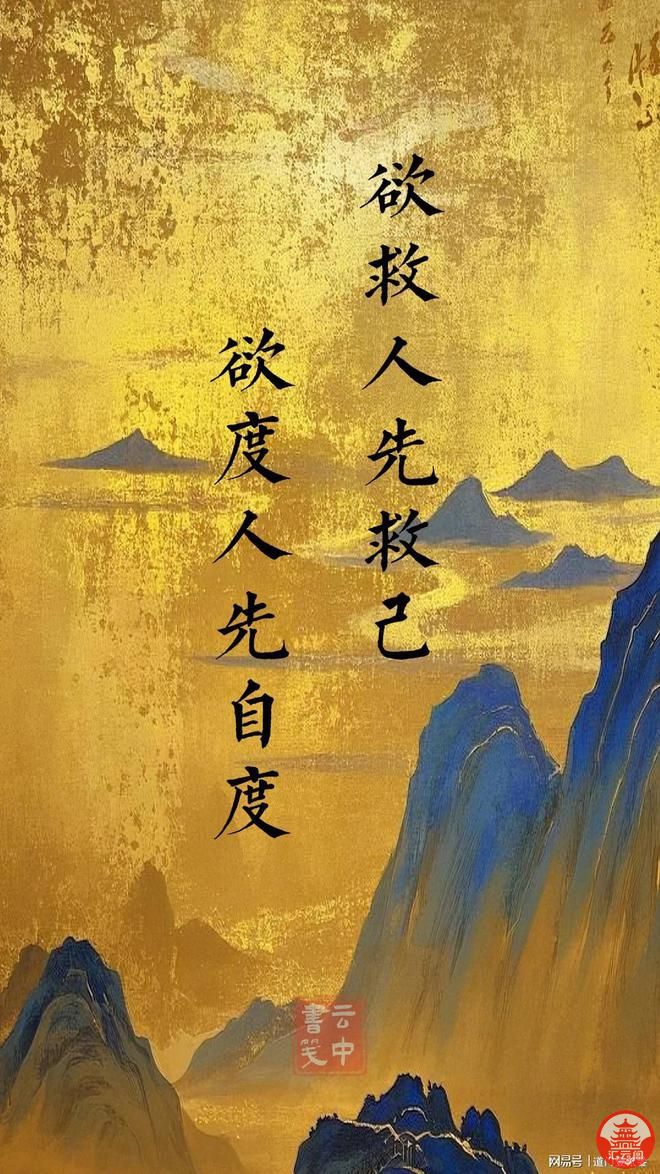 欲救人先救己
欲度人先自度
云中
書笺
网易号
道门
汇云阁